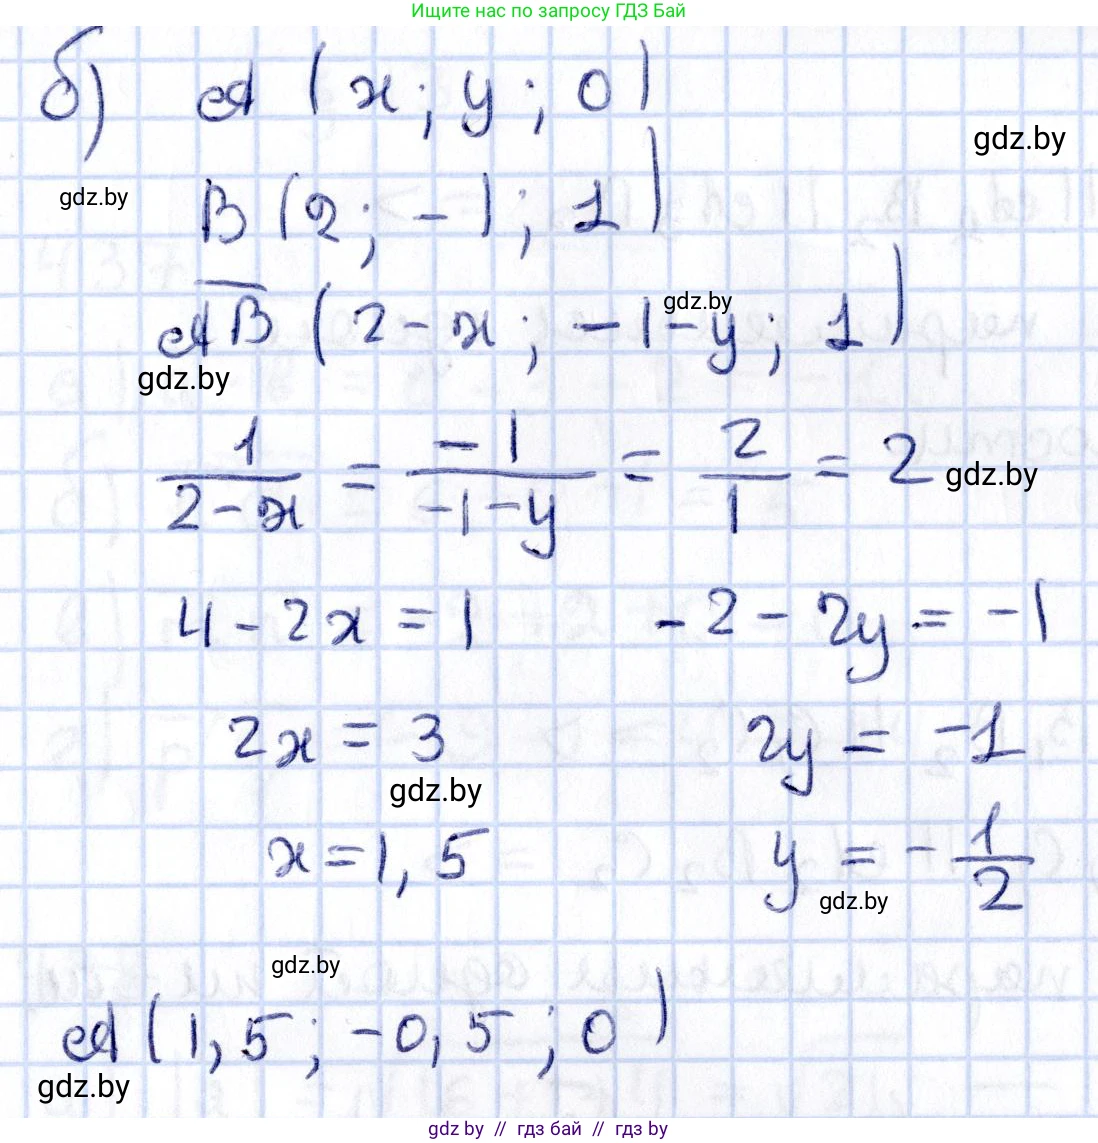 Ищите нас по запросу ГДЗ Бай
б) A (x; y; 0)
gdz.by
gdz.by
B (2; -1; 1)
gdz.by
AB (2-x; -1-y; 1)
gdz.by
1/(2-x) = -1/(-1-y) = 2/1 = 2
gdz.by
4-2x=1 -2-2y=-1
2x=3 2y=-1
gdz.by
x=1,5 y=-1/2
gdz.by
gdz.by
A (1,5; -0,5; 0)
gdz.by
gdz.by // гдз бай // гдз by